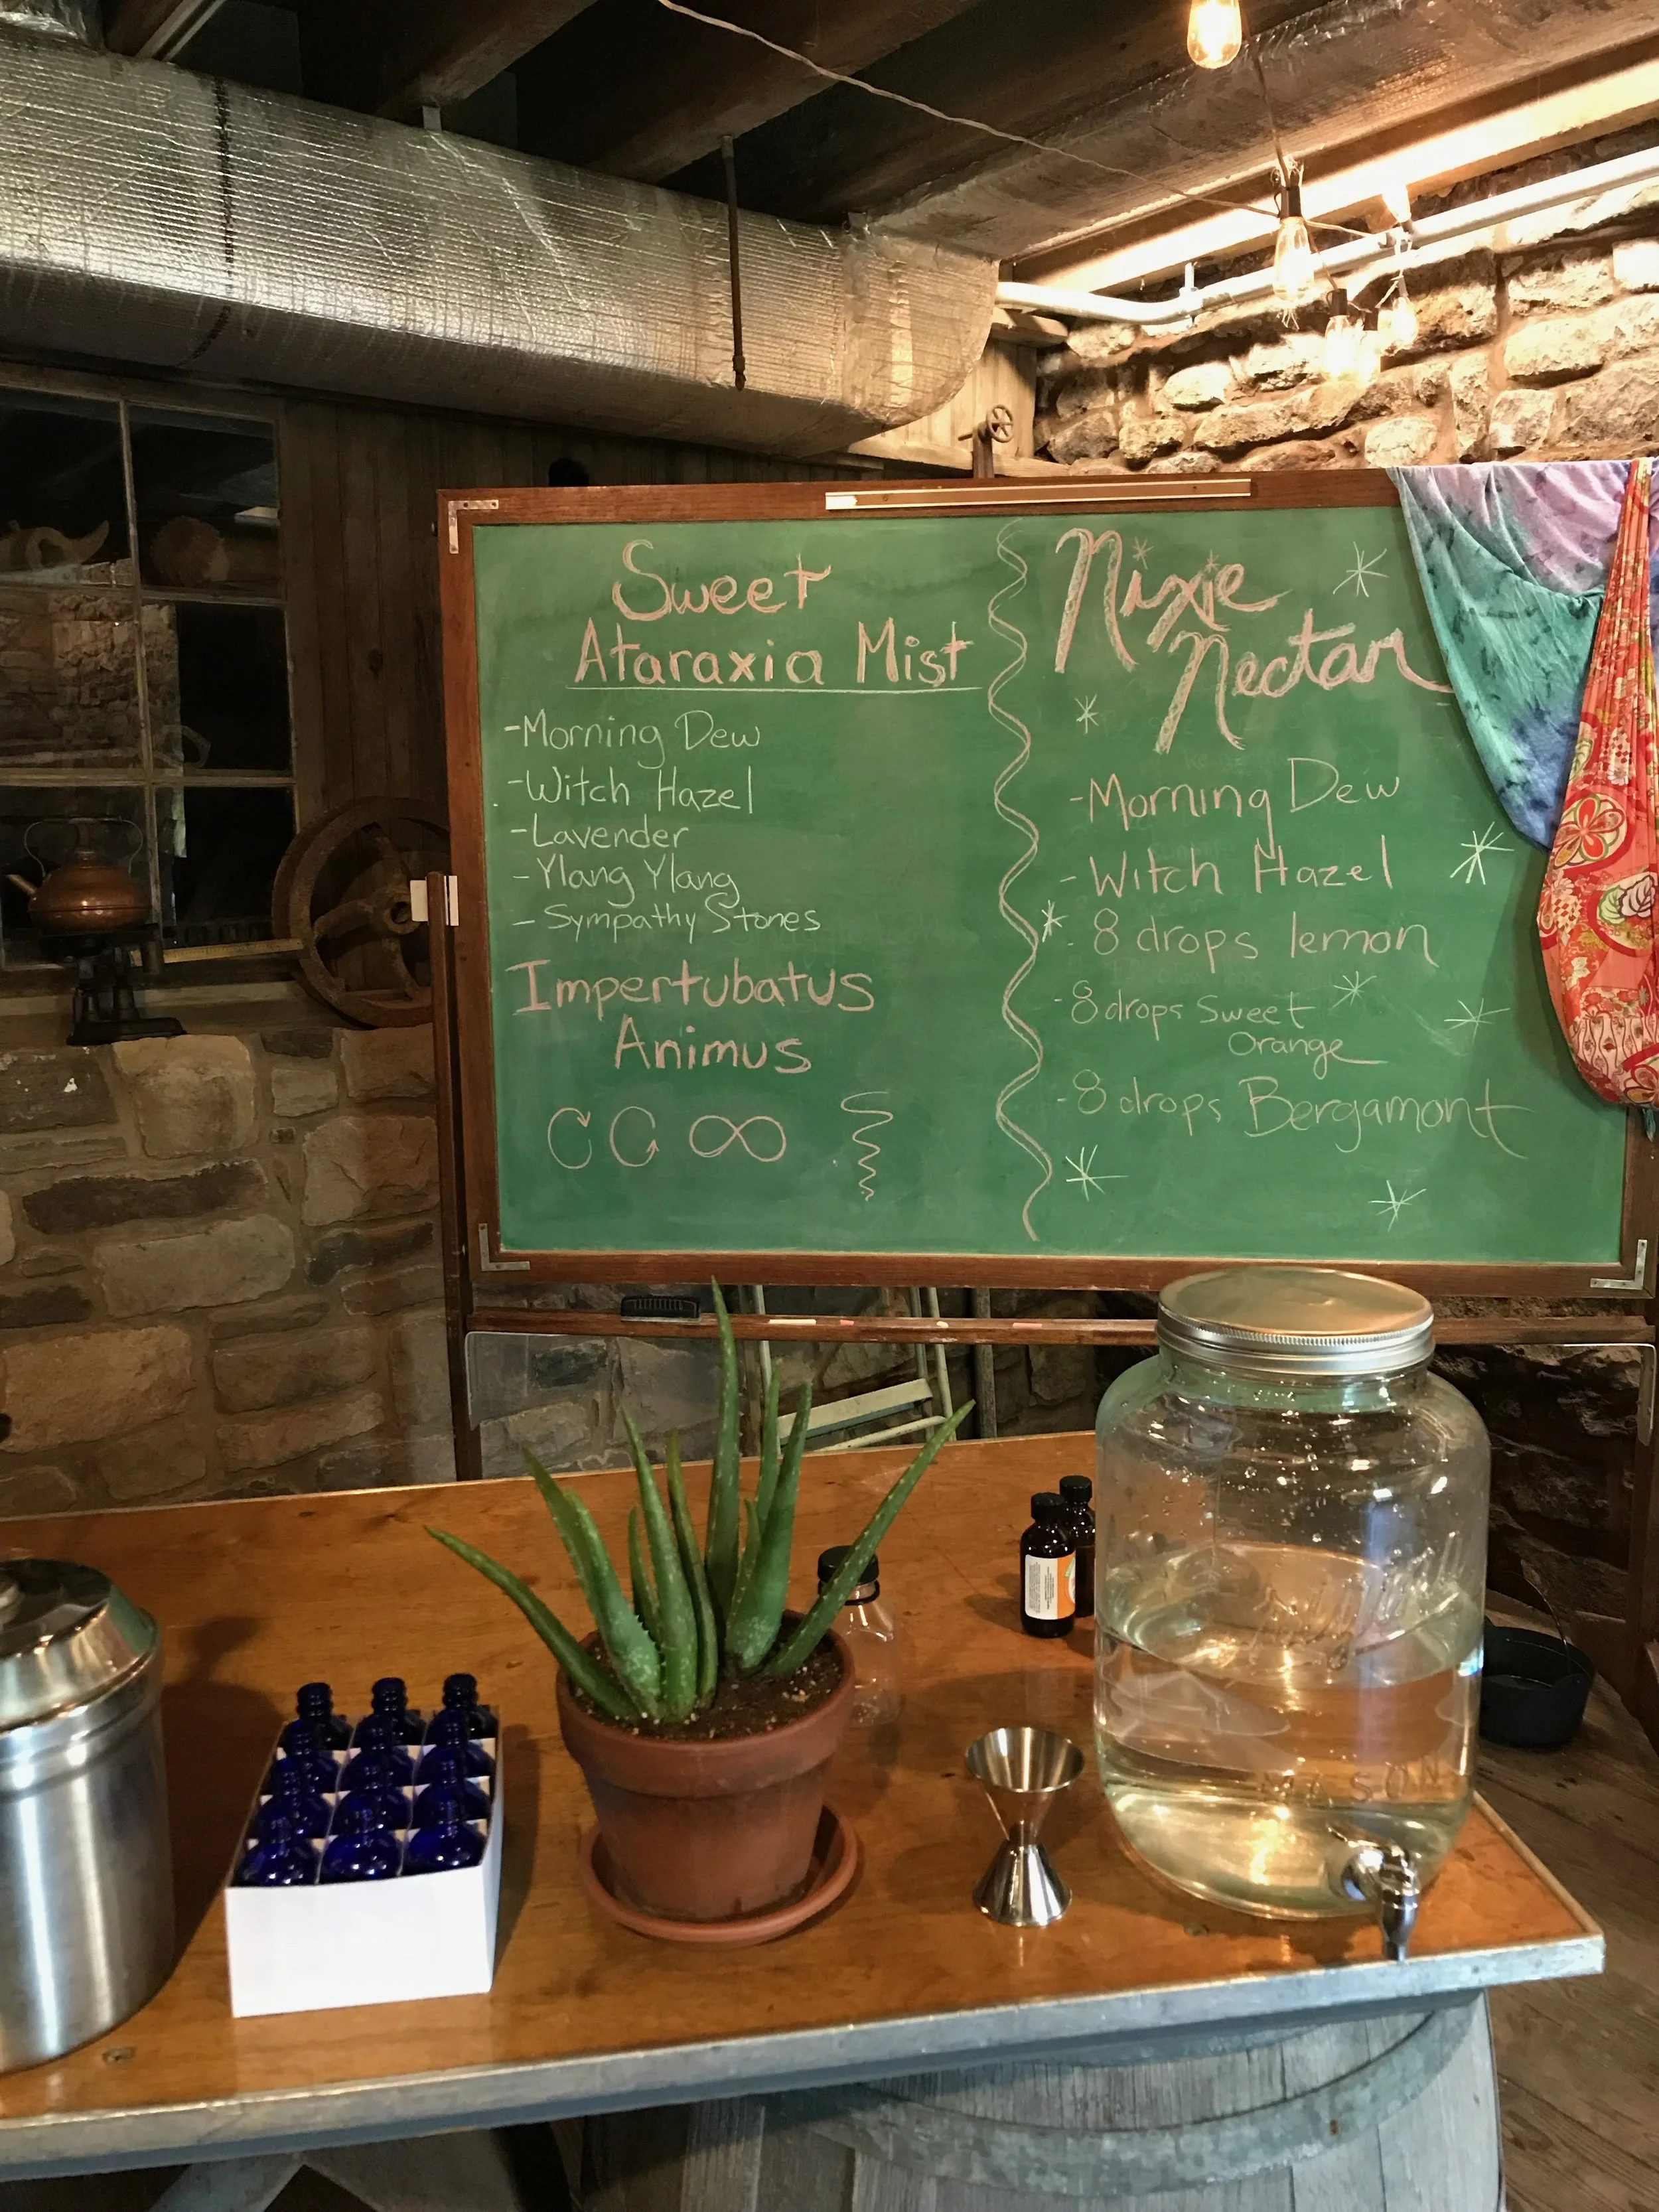 Sweet
Ataraxia Mist
-Morning Dew
-Witch Hazel
-Lavender
-Ylang Ylang
-Sympathy Stones
Impertubatus
Animus
Nixie
Nectar
-Morning Dew
-Witch Hazel
- 8 drops lemon
-8 drops Sweet
Orange
-8 drops Bergamont
MASON